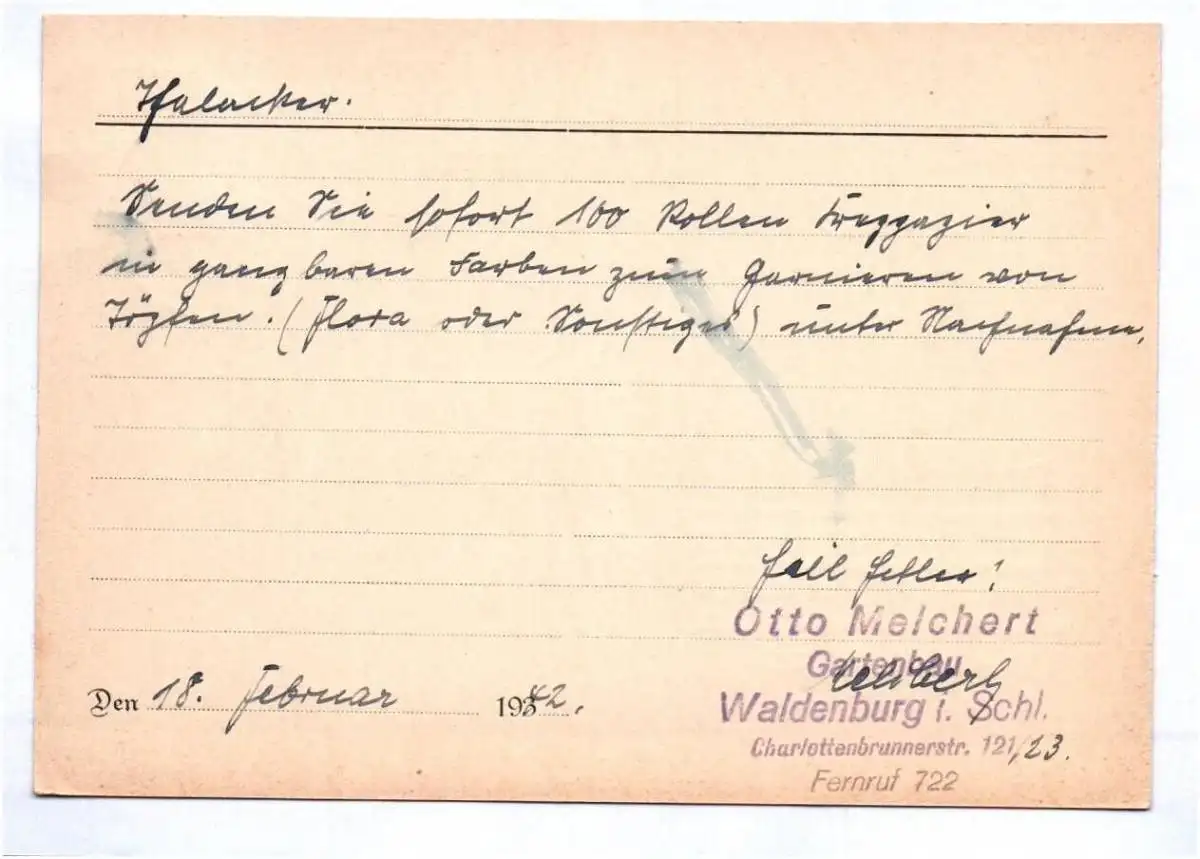 Senden Sie sofort 100 Rollen Kreppapier
in gangbaren Farben zum Garnieren von
Töpfen. (Flora oder Sonstiges) unter Nachnahme.
Heil Hitler!
Otto Melchert
Gartenbau
Waldenburg i. Schl.
Charlottenbrunnerstr. 121/23.
Fernruf 722
Den 18. Februar 1942.